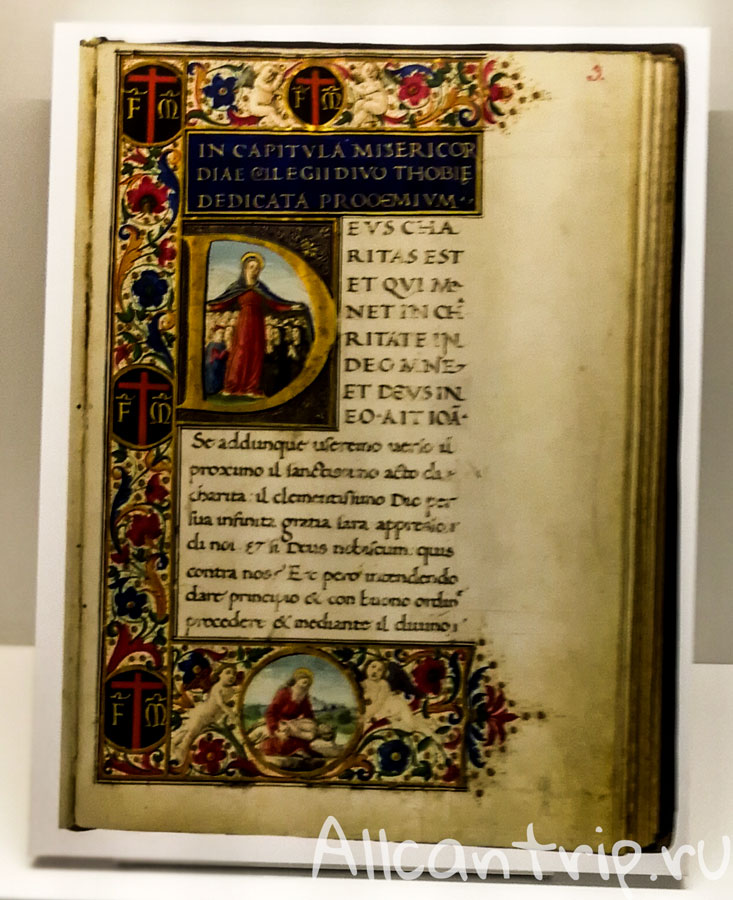 3.
F M
F M
IN CAPITVLA MISERICOR
DIAE COLLEGII DIVO THOBIĘ
DEDICATA PROOEMIVM
D
EVS CHA
RITAS EST
ET QVI MA
NET IN CHA
RITATE IN
DEO MANE
ET DEVS IN
EO · AIT IOÃ ·
F M
Se addunque useremo verso il
proximo il sanctissimo acto da
charita: il clementissimo Dio per
sua infinita gratia sara appresso
di noi · Et si Deus nobiscum: quis
contra nos? Et pero intendendo
dare principio & con buono ordine
procedere & mediante il diuino
F M
Allcantrip.ru